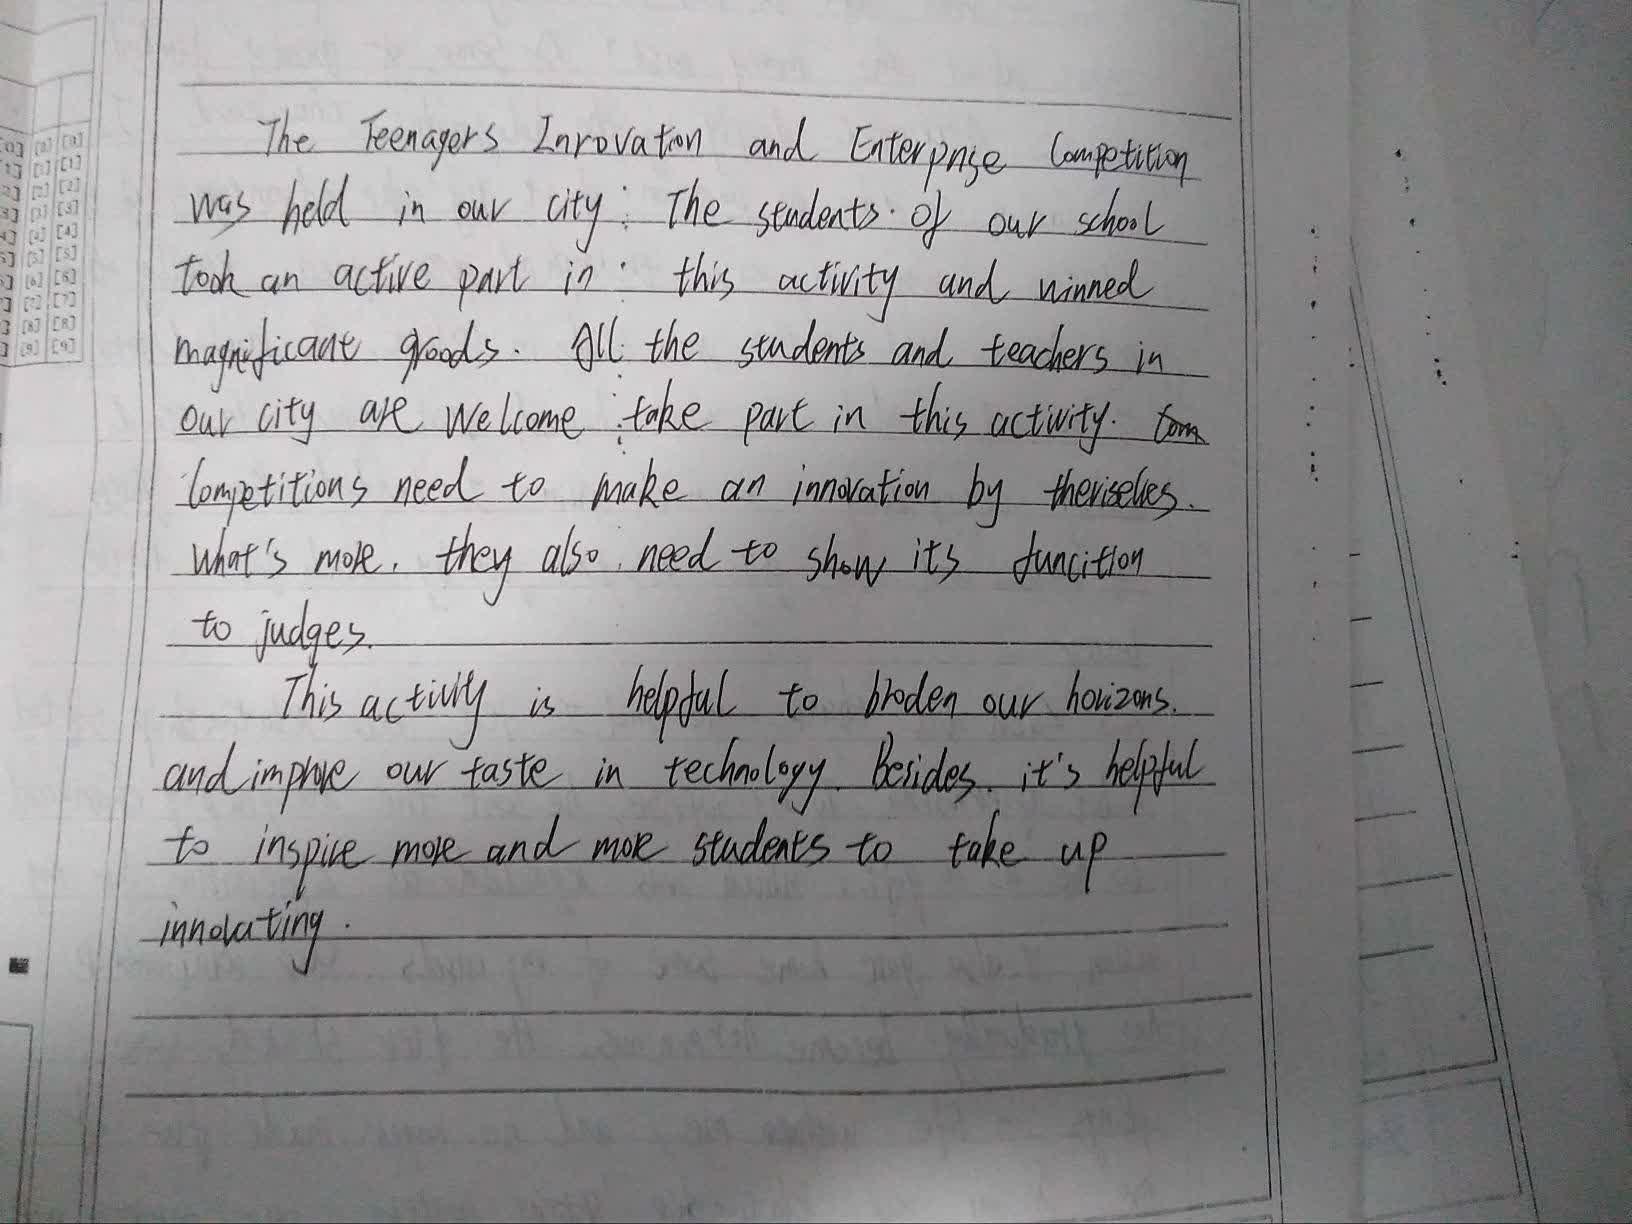 The Teenagers Inrovation and Enterprise Competition
was held in our city. The students of our school
took an active part in this activity and winned
magnificant groods. All the students and teachers in
our city are welcome take part in this activity.
Competitions need to make an innovation by theriselves.
What's more, they also need to show its funcition
to judges.
This activity is helpful to broden our horizons.
and improve our taste in technology. Besides, it's helpful
to inspire more and more students to take up
innovating.